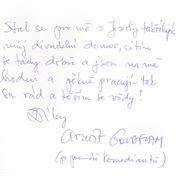 Stal se pro mě z Jízdy takříkajíc
můj divadelní domov, cítím
se tady dobře a jsou na mě
hodní a pěkně pracují - tak
su rád a těším se vždy!
Díky
Arnošt Goldflam
(go komediantů)